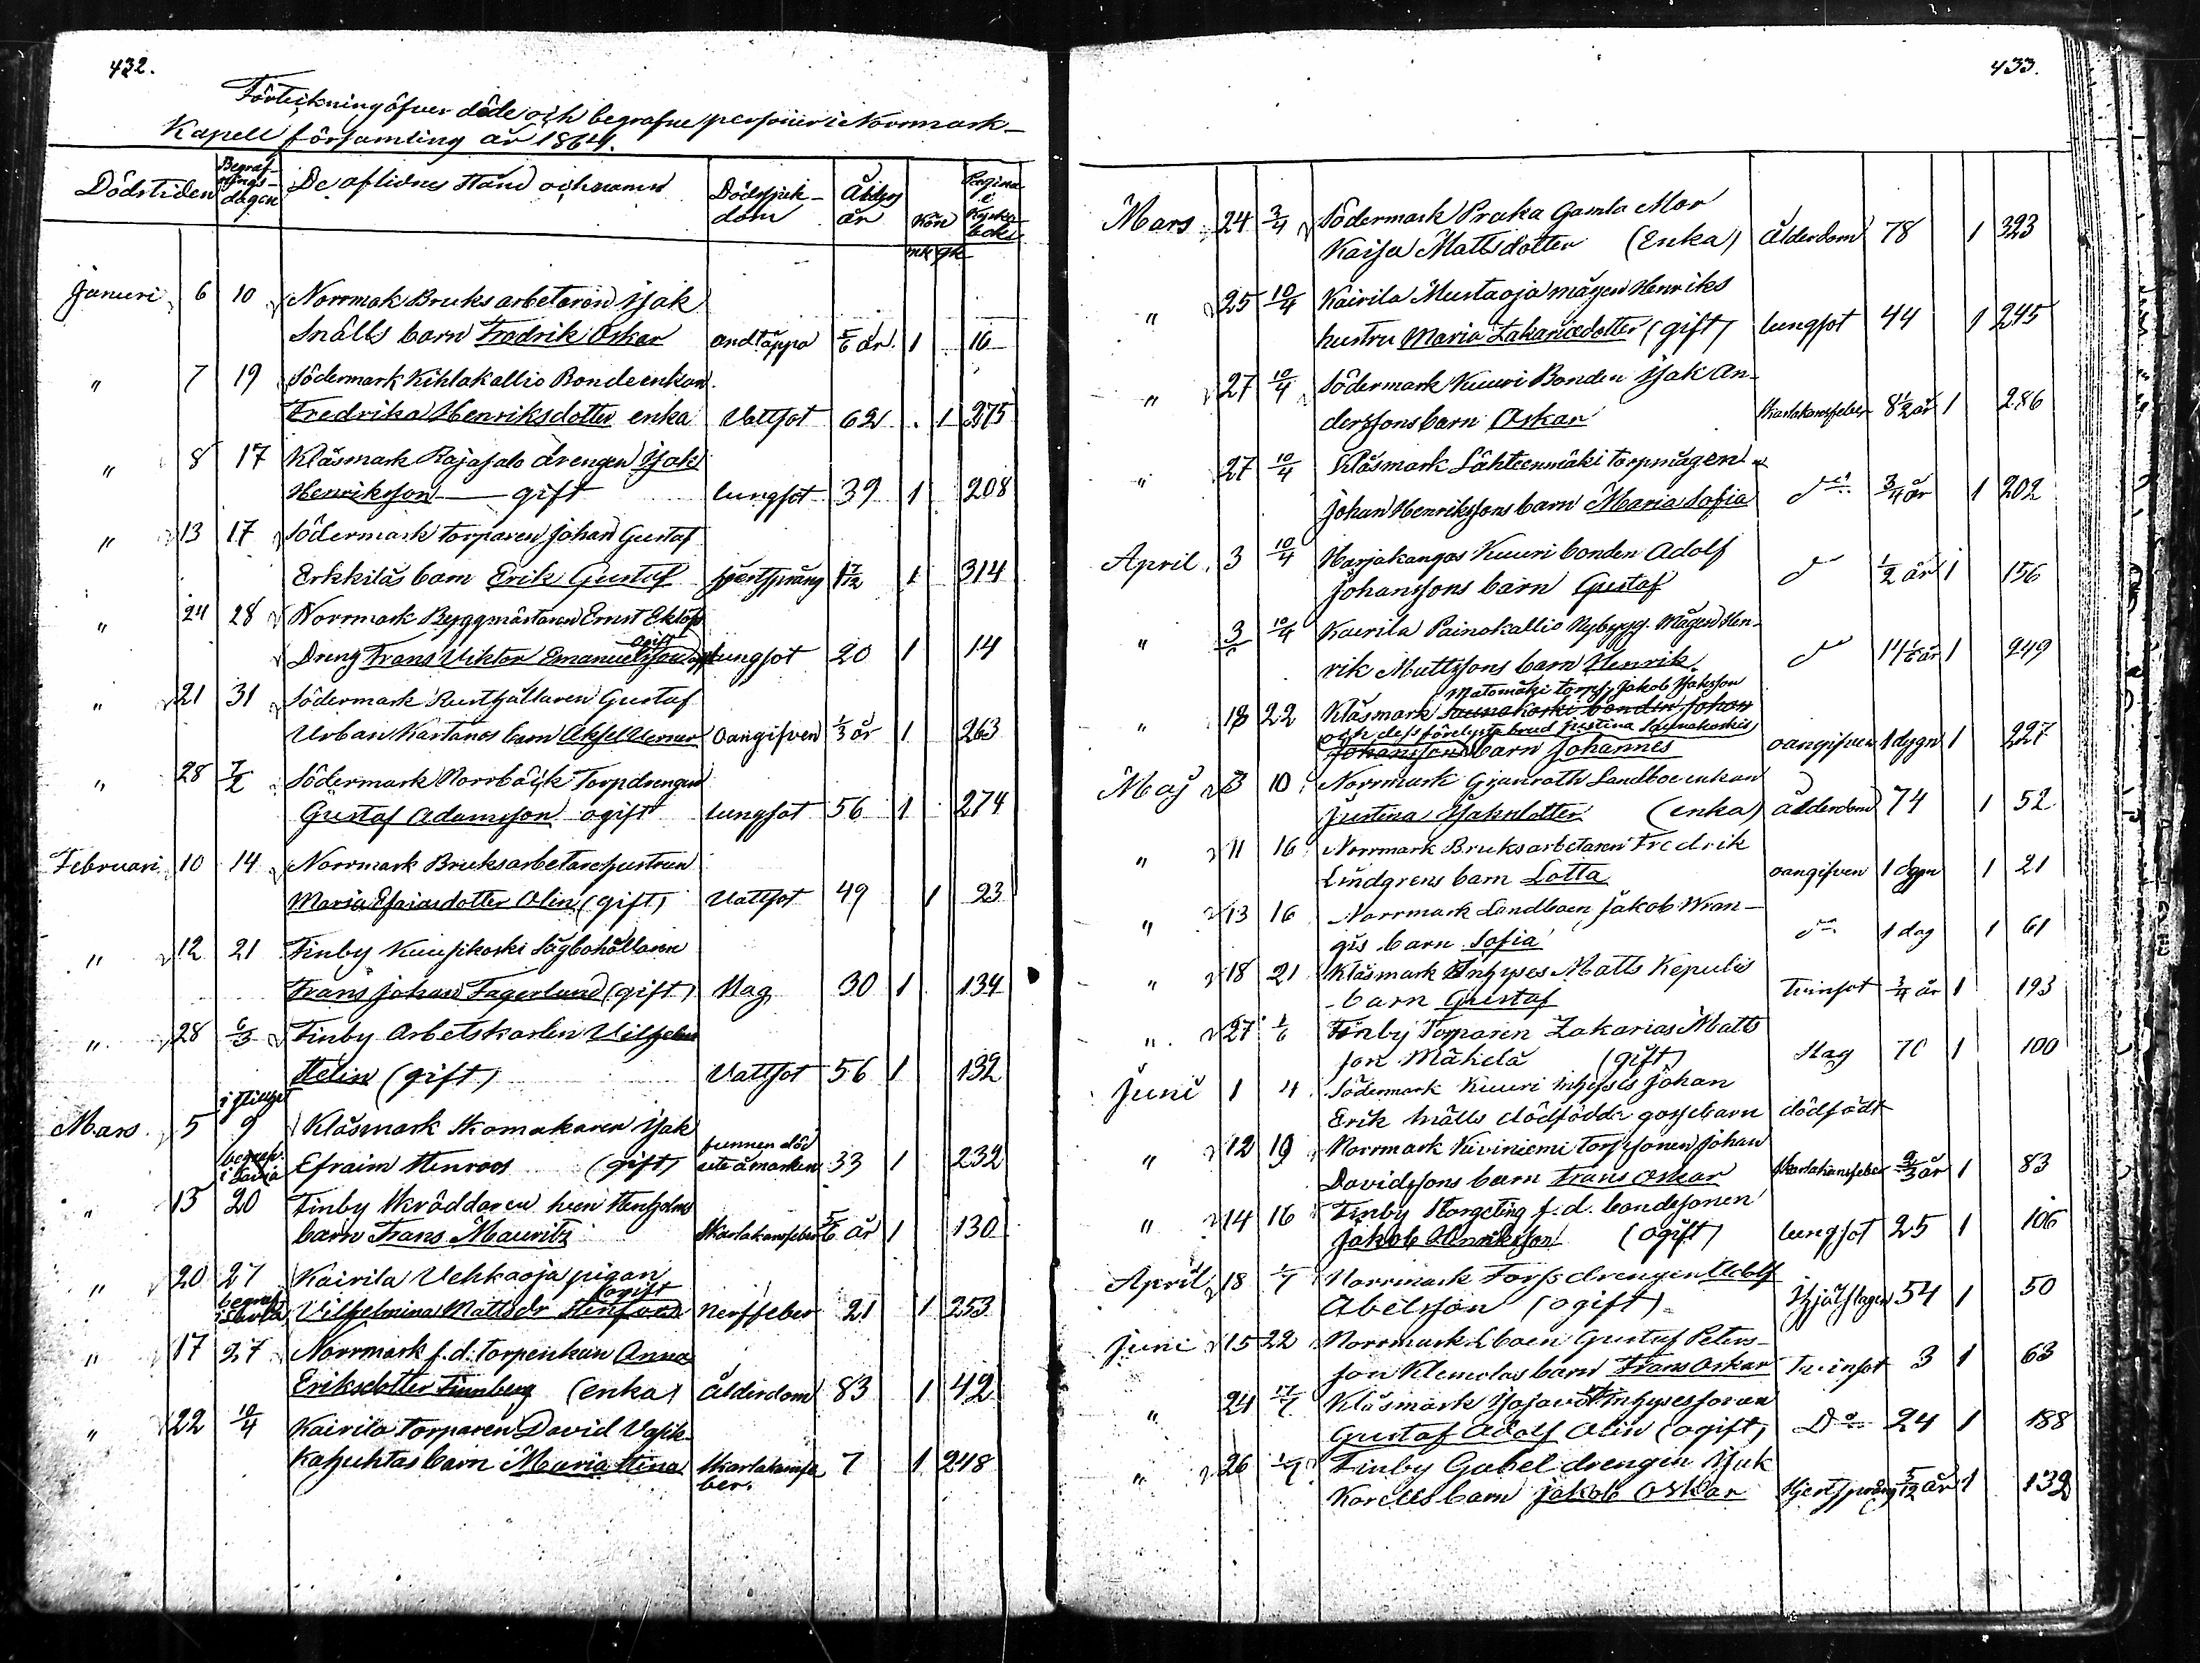 432.
Förteckning öfver döde och begrafne personer i Norrmark
Kapell församling år 1864.
Dödstiden Begrafningsdagen De aflidnes stånd och namn Dödssjukdom Ålder år Kön mk qk Pagina i Kyrkoboken
Januri 6 10 Norrmark Bruksarbetaren Isak
Snälls barn Fredrik Oskar andtäppa 5/6 år 1 16
" 7 19 Södermark Kihlakallio Bondeenkan
Fredrika Henriksdotter enka Vattsot 62 1 275
" 8 17 Klåsmark Rajasalo drengen Isak
Henriksson gift lungsot 39 1 208
" 13 17 Södermark torparen Johan Gustaf
Erkkiläs barn Erik Gustaf 1 314
" 24 28 Norrmark Byggmästaren Ernst
Dreng Frans Viktor Emanuelsson ogift lungsot 20 1 14
" 21 31 Södermark Rusthållaren Gustaf
Urban Kartanos barn Aksel Verner oangifven 1/3 år 1 263
" 28 7/2 Södermark Norrbäck Torpdrengen
Gustaf Adamsson ogift lungsot 56 1 274
Februari 10 14 Norrmark Bruksarbetarehustrun
Maria Esaiasdotter Olin (gift) Vattsot 49 1 23
" 12 21 Finby Kuusikoski Sågbohållaren
Frans Johan Fagerlund (gift) Slag 30 1 134
" 28 6/3 Finby Arbetskarlen Vilhelm
Helin (gift) Vattsot 56 1 132
Mars 5 9 Klåsmark Skomakaren Isak
begraf. i Lavia Efraim Stenroos (gift) funnen död ute å marken 33 1 232
" 13 20 Finby Skräddaren Stenholms
barn Frans Mauritz Skarlakansfeber 5/6 år 1 130
" 20 27 Kairila Vehkaoja pigan
begraf. Vilhelmina Mattsdr Stenfors ogift Nerffeber 21 1 253
" 17 27 Norrmark f.d. torpenkan Anna
Eriksdotter Finnberg (enka) Ålderdom 83 1 42
" 22 10/4 Kairila torparen David
barn Maria Stina Skarlakansfeber. 7 1 248
433.
Mars 24 3/4 Södermark Pruka Gamla Mor
Kaisa Mattsdotter (Enka) Ålderdom 78 1 323
" 25 10/4 Kairila Mustaoja mågen Henriks
hustru Maria Zakariedotter (gift) lungsot 44 1 245
" 27 10/4 Södermark Kuuri Bonden Isak An-
derssons barn Oskar Skarlakansfeber 8 1/2 år 1 286
" 27 10/4 Klåsmark Lähteenmäki torpmågen
Johan Henrikssons barn Maria Sofia do 3/4 år 1 202
April 3 10/4 Harjakangas Kuuri bonden Adolf
Johanssons barn Gustaf do 1/2 år 1 156
" 3 10/4 Kairila Painokallio Nybygg. Mågen Hen-
rik Mattssons barn Henrik do 14 1/6 år 1 249
Matomäki torps. Jakob Isaksson
" 18 22 Klåsmark Saunakoski bonden Johan
och dess förelysta brud Justina Saunakoski
Johanssons barn Johannes oangifven 1 dygn 1 227
Maj 3 10 Norrmark Granroth Landboenkan
Justina Isaksdotter (enka) ålderdom 74 1 52
" 11 16 Norrmark Bruksarbetaren Fredrik
Lindgrens barn Lotta oangifven 1 dygn 1 21
" 13 16 Norrmark Landboen Jakob Wran-
gis barn Sofia do 1 dag 1 61
" 18 21 Klåsmark Inhyses Matts Kepulis
barn Gustaf Tvinsot 3/4 år 1 193
" 27 1/6 Finby Torparen Zakarias Matts
son Mäkelä (gift) Slag 70 1 100
Juni 1 4 Södermark Kuuri inhyses Johan
Erik Snälls dödfödda gossebarn dödfödt
" 12 19 Norrmark Kiviniemi Torpsonen Johan
Davidssons barn Frans Oskar Skarlakansfeber 2/3 år 1 83
" 14 16 Finby Storgeting f.d. bondesonen
Jakob Henriksson (ogift) lungsot 25 1 106
April 18 1/7 Norrmark Forss drengen Adolf
Abelsson (ogift) Hjälslagen 54 1 50
Juni 15 22 Norrmark Lboen Gustaf Peters-
son Klemolas barn Frans Oskar Tvinsot 3 1 63
" 24 17/7 Klåsmark Inhysessonen
Gustaf Adolf Olin (ogift) Do 24 1 188
" 26 Finby Gabel drengen Isak
Karells barn Jakob Oskar Hjertsprång 5/12 år 1 132